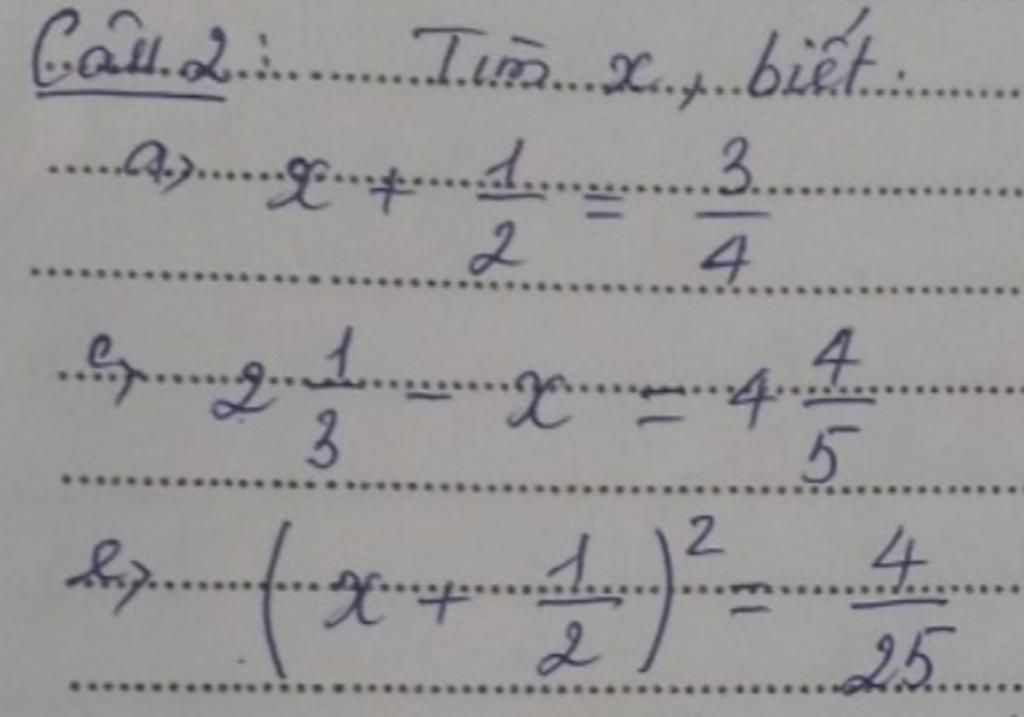 Câu 2: Tìm x, biết.
a, x + 1/2 = 3/4
c, 2 1/3 - x = 4 4/5
b, (x + 1/2)² = 4/25